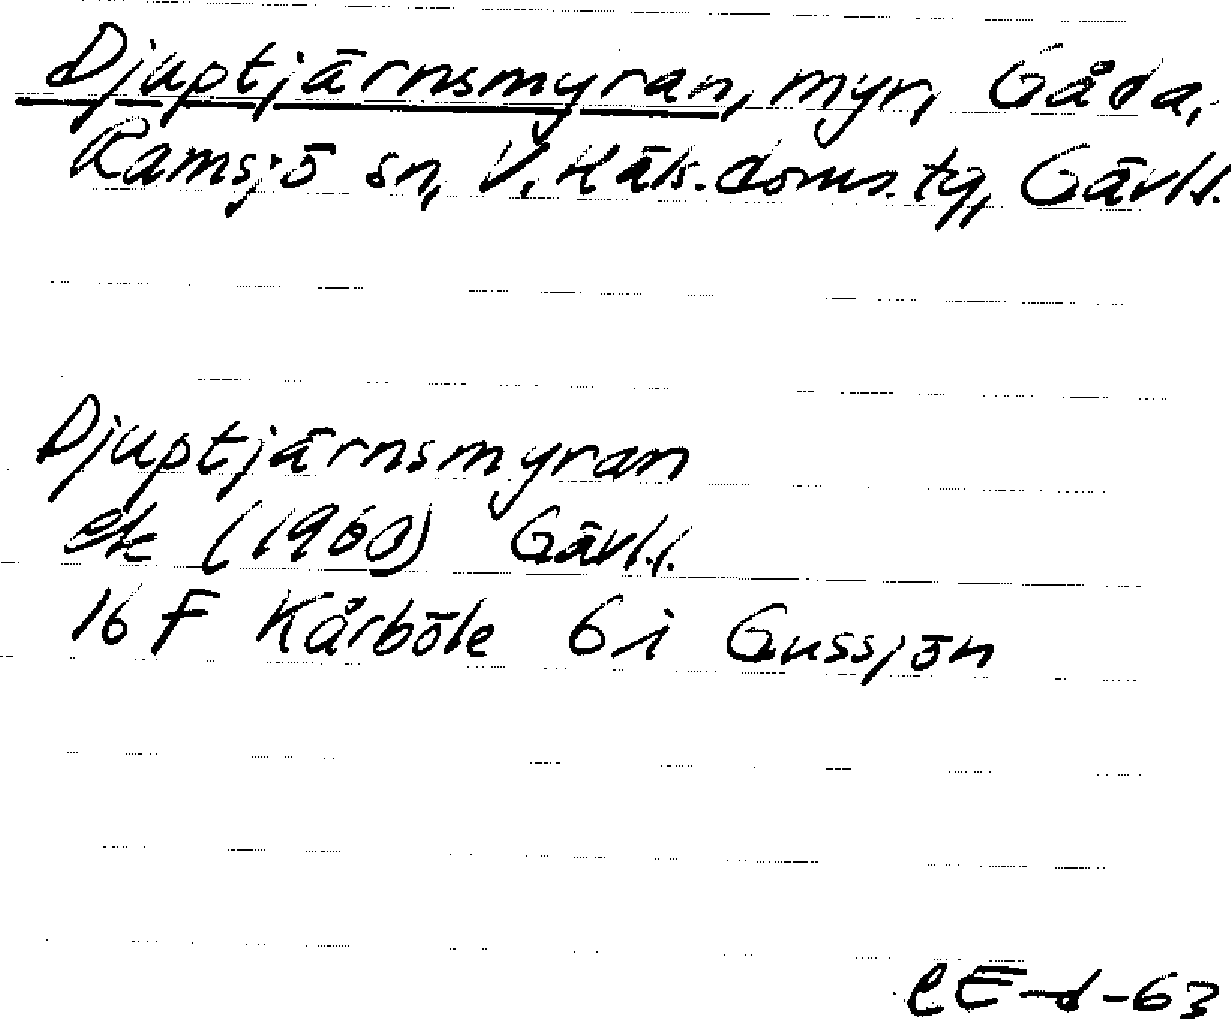 Djuptjärnsmyran, myr, Gåda,
Ramsjö sn, V. Häls. doms. tg, Gävl.l.
Djuptjärnsmyran
ek (1960) Gävl.l.
16 F Kårböle 6 i Gussjön
CE-d-63